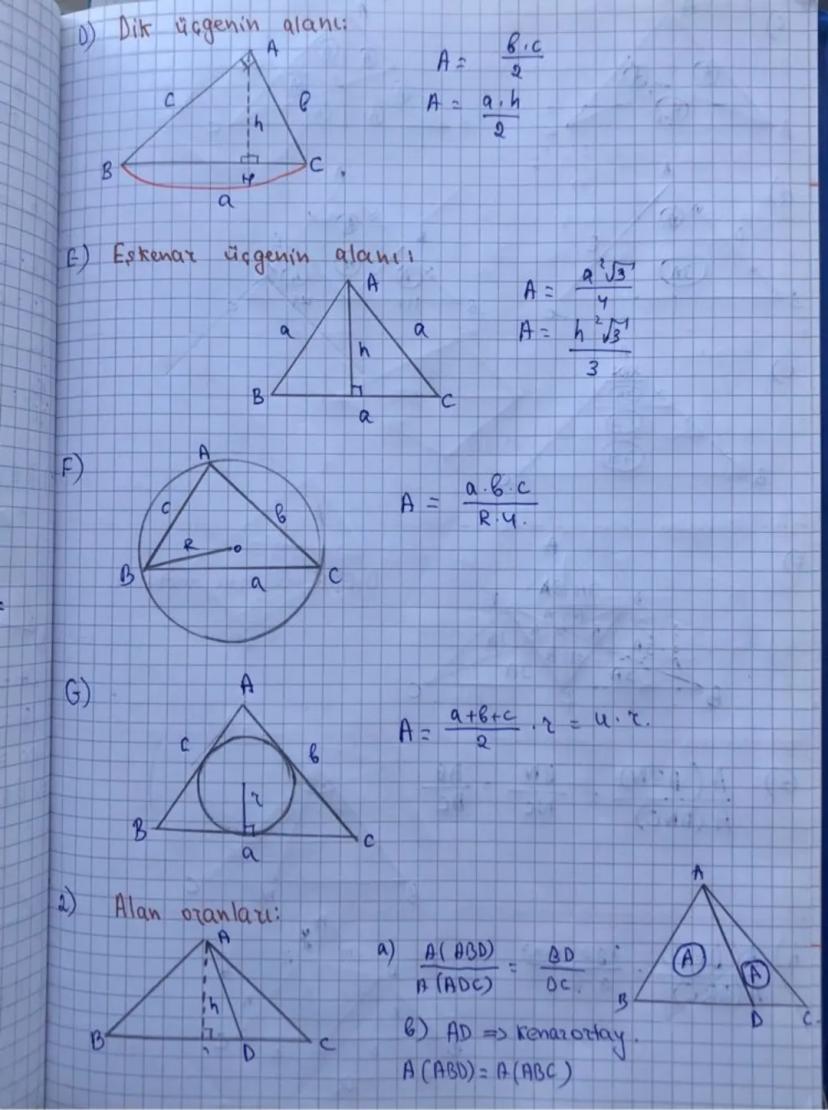 D) Dik üçgenin alanı:
A
c
b
h
B
H
C
a
A = b·c / 2
A = a·h / 2
E) Eşkenar üçgenin alanı:
A
a
a
h
B
C
a
A = a²√3 / 4
A = h²√3 / 3
F)
A
c
b
R
o
B
a
C
A = a·b·c / R·4.
G)
A
c
b
r
B
a
C
A = a+b+c / 2 · r = u·r.
2) Alan oranları:
A
h
B
D
C
a) A(ABD) / A(ADC) = BD / DC
b) AD => kenarortay.
A(ABD) = A(ABC)
A
A
A
B
D
C